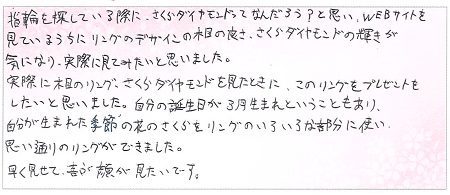 指輪を探している際に、さくらダイヤモンドってなんだろう？と思い、WEBサイトを
見ているうちにリングのデザインの木目の良さ、さくらダイヤモンドの輝きが
気になり、実際に見てみたいと思いました。
実際に木目のリング、さくらダイヤモンドを見たときに、このリングをプレゼントを
したいと思いました。自分の誕生日が3月生まれということもあり、
自分が生まれた季節の花のさくらをリングのいろいろな部分に使い
思い通りのリングができました。
早く見せて、喜ぶ顔が見たいです。